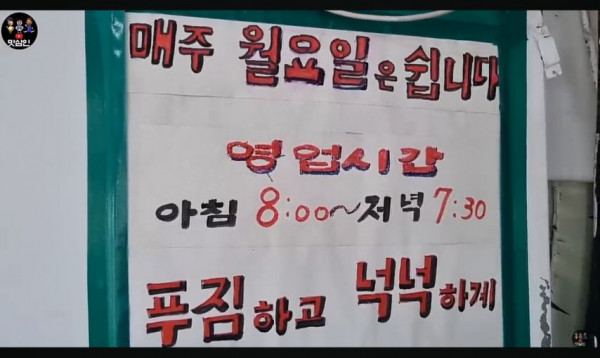 맛상인
매주 월요일은 쉽니다
영업시간
아침 8:00~저녁 7:30
푸짐하고 넉넉하게